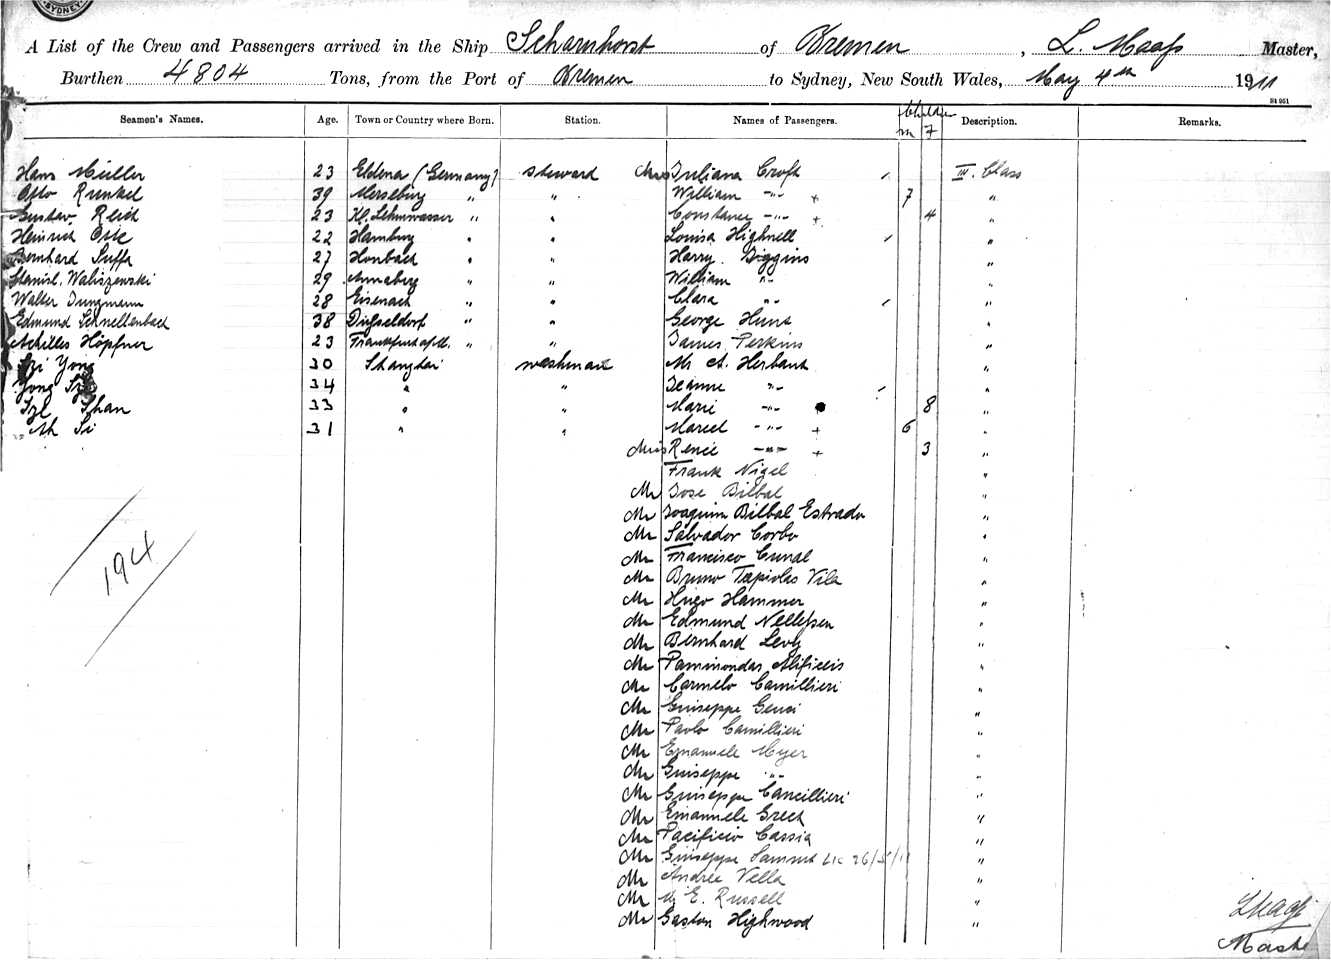 SYDNEY
A List of the Crew and Passengers arrived in the Ship Scharnhorst of Bremen, L. Maass Master,
Burthen 4804 Tons, from the Port of Bremen to Sydney, New South Wales, May 4th 1911
St 951
Children
Seamen's Names. Age. Town or Country where Born. Station. Names of Passengers. m F Description. Remarks.
Hans Müller 23 Eldena (Germany) steward Mrs Juliana Croft III. Class
Otto Runkel 39 Merseburg " " William -"- + 7 "
Gustav Reich 23 Kl. Lehnwasser " " Constance -"- + 4 "
Heinrich 22 Hamburg " " Louisa Highnell "
Bernhard 27 Honbach " " Harry Biggins "
Stanisl. Waliszewski 29 Annaberg " " William "- "
Walter Jungmann 28 Eisenach " " Clara "- "
Edmund Schnellenbach 38 Düsseldorf " " George Hunt "
Achilles Höpfner 23 Frankfurt a/M. " " James Perkins "
Yong 30 Shanghai washman Mr A. Herbaut "
Yong 34 " " Jeanne "- "
Shan 33 " " Marie -"- 8 "
Ah Si 31 " " Marcel -"- + 6 "
Miss Renée -"- + 3 "
Frank Nigel "
Mr Jose Bilbal "
Mr Joaquim Bilbal Estrada "
Mr Salvador Corbo "
Mr Francisco Cunal "
Mr Bruno Tapiolas Vila "
Mr Hugo Hammer "
Mr Edmund Nellessen "
Mr Bernhard Levy "
Mr Paminondas "
Mr Carmelo Camillieri "
Mr Guiseppe Genci "
Mr Paolo Camillieri "
Mr Emanuele Myer "
Mr Guiseppe "- "
Mr Guiseppe Cancillieri "
Mr Emanuele Grech "
Mr Pacificio Cassia "
Mr Guiseppe Sammut 26/5/11 "
Mr Andrea Vella "
Mr E. Russell "
Mr Gaston Highwood "
194
LMaass
Master